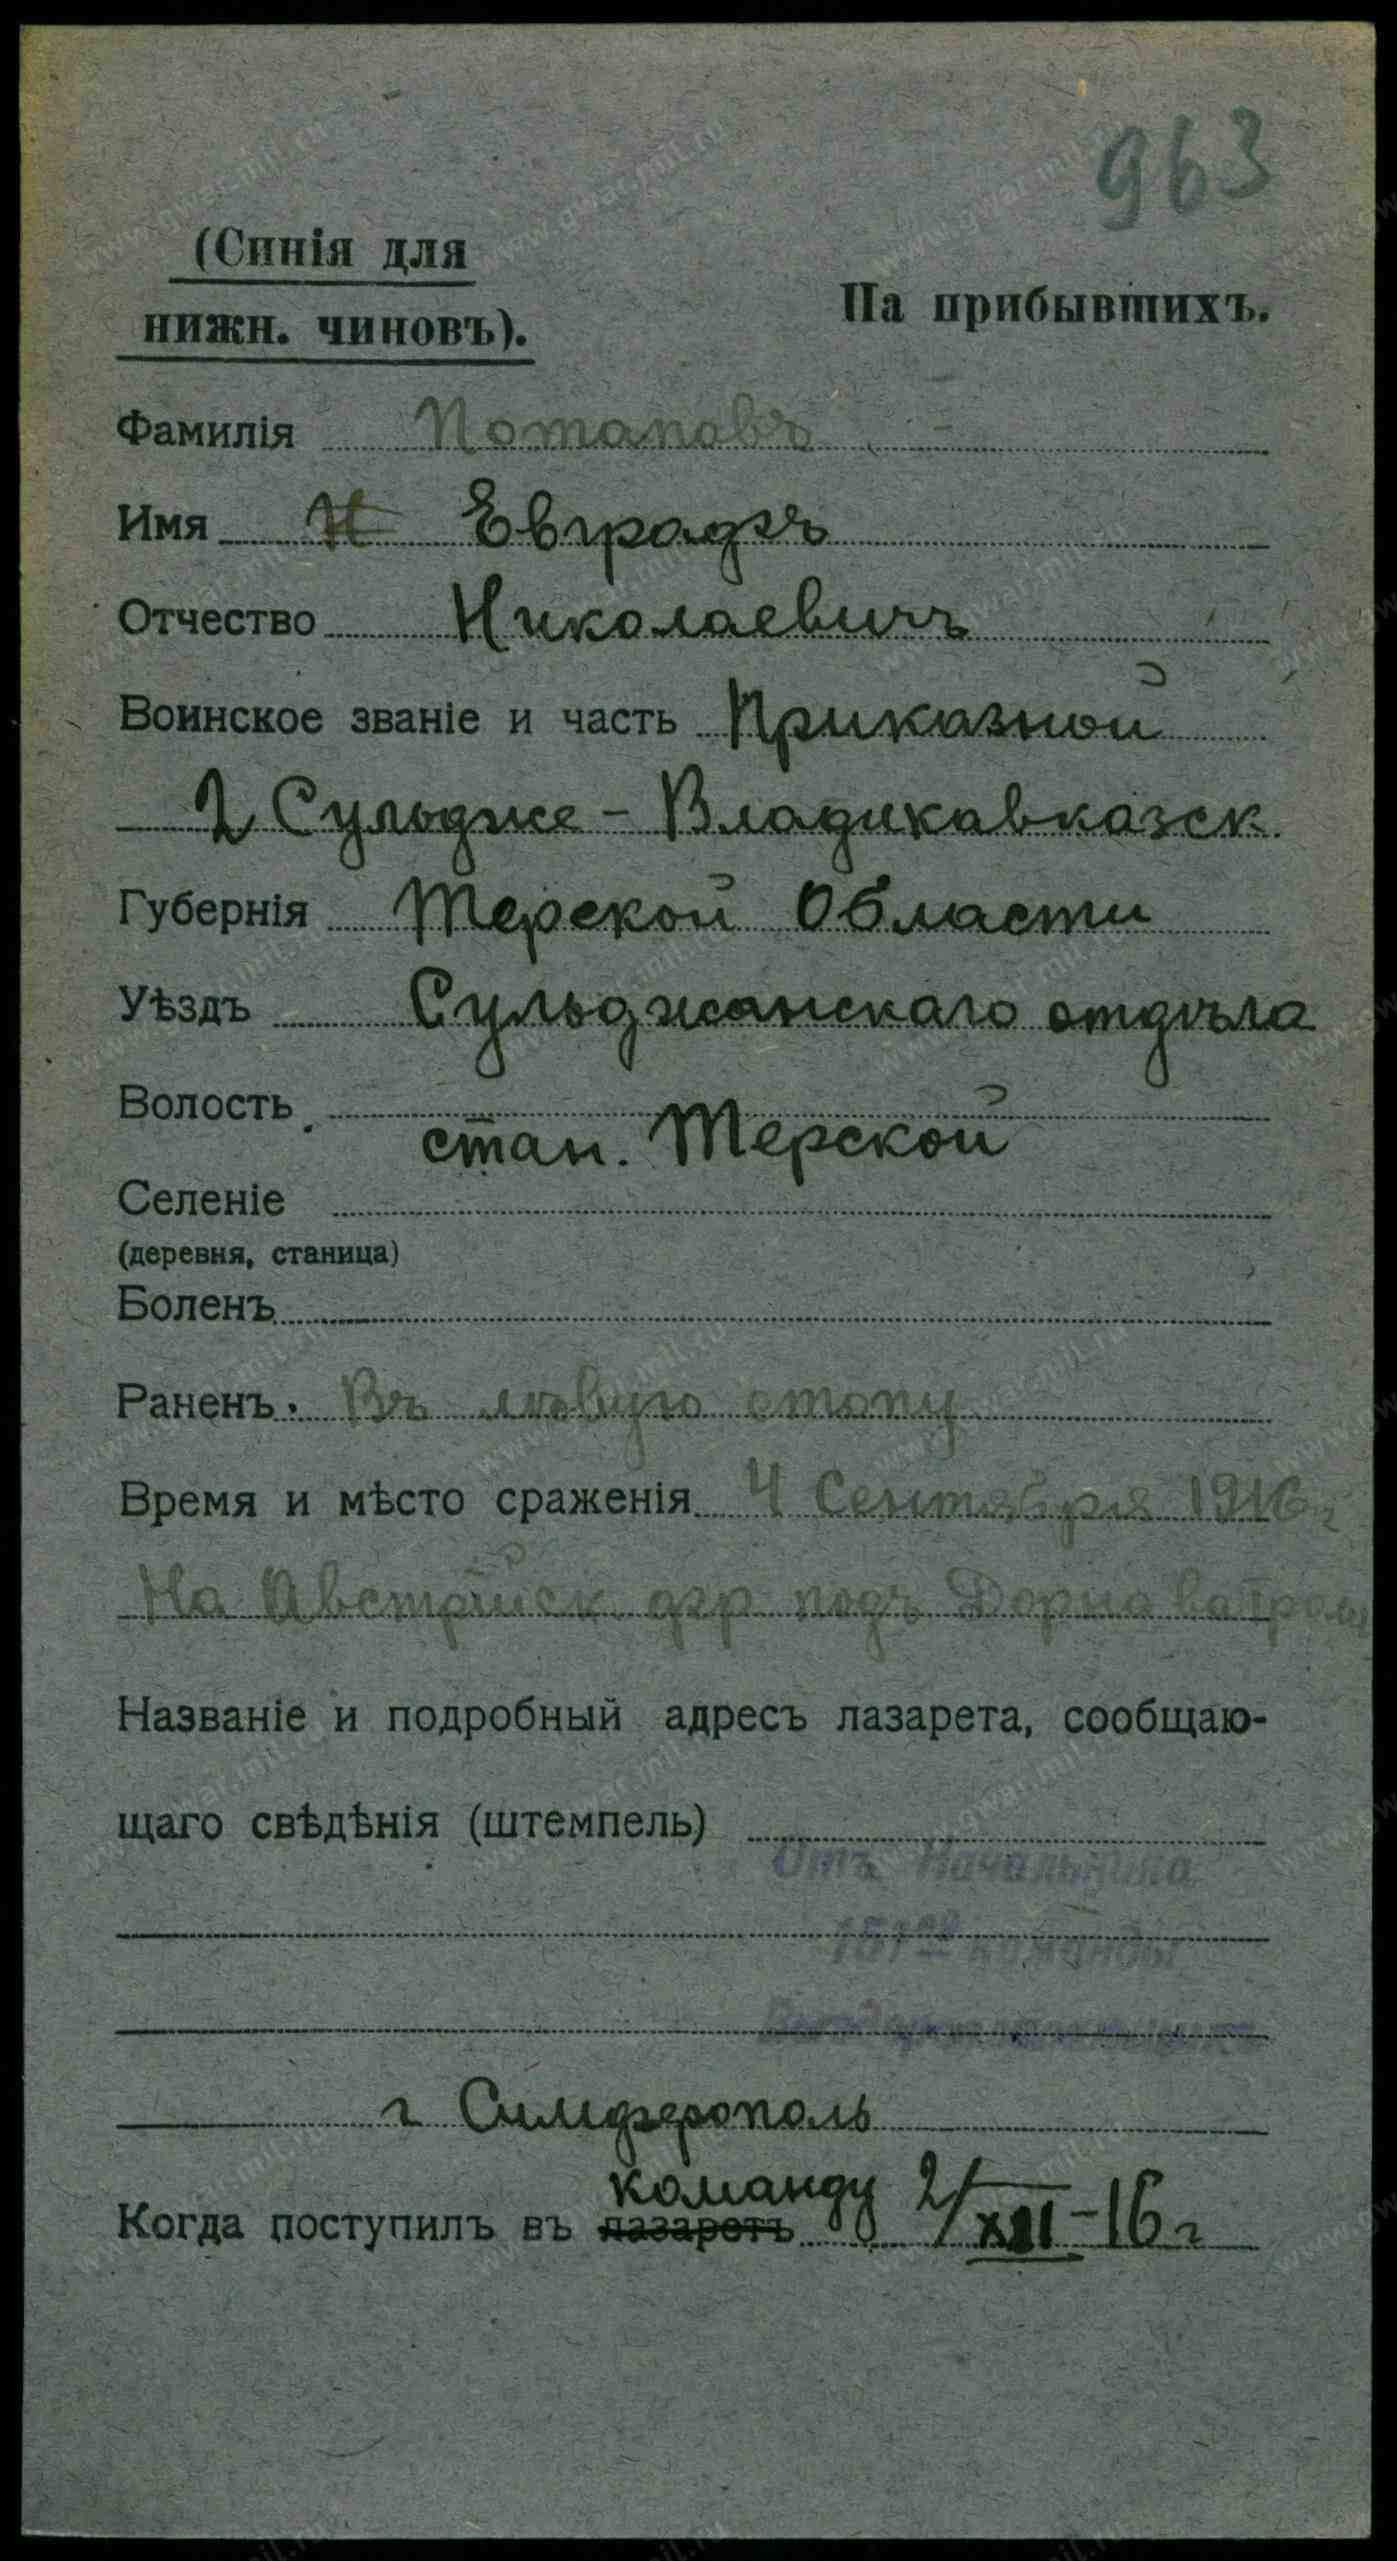 963
(Синія для
нижн. чиновъ).
На прибывшихъ.
Фамилія Потаповъ
Имя Н Евграфъ
Отчество Николаевичъ
Воинское званіе и часть Приказной
2 Сульдже - Владикавказск.
Губернія Терской Области
Уѣздъ Сульджанскаго отдѣла
Волость
стан. Терской
Селеніе
(деревня, станица)
Боленъ
Раненъ. Въ лѣвую стопу
Время и мѣсто сраженія 4 Сентября 1916 г
На Австрійск фр подъ Дорна
Названіе и подробный адресъ лазарета, сообщаю-
щаго свѣдѣнія (штемпель)
Отъ Начальника
151ой команды
г Симферополь
команду
Когда поступилъ въ лазаретъ 2/XII-16 г